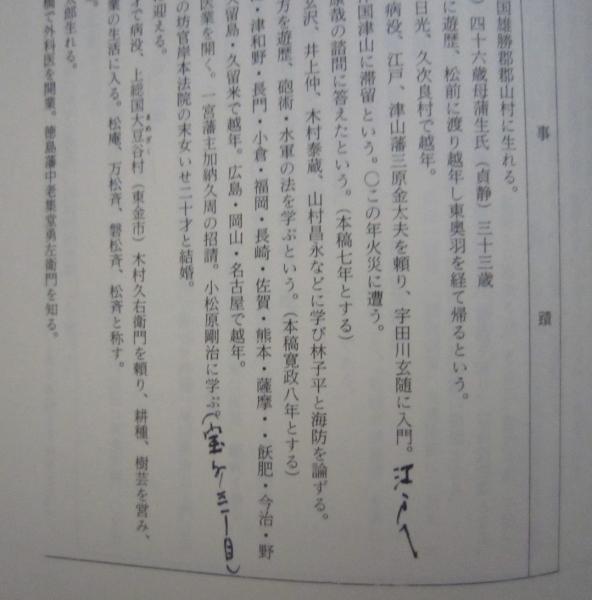 事蹟
国雄勝郡郡山村に生れる。
）四十六歳母蒲生氏（貞静）三十三歳
に遊歴、松前に渡り越年し東奥羽を経て帰るという。
日光、久次良村で越年。
病没、江戸、津山藩三原金太夫を頼り、宇田川玄随に入門。江戸へ
国津山に滞留という。〇この年火災に遭う。
康哉の諮問に答えたという。（本稿七年とする）
玄沢、井上仲、木村泰蔵、山村昌永などに学び林子平と海防を論ずる。
方を遊歴、砲術・水軍の法を学ぶという。（本稿寛政八年とする）
・津和野・長門・小倉・福岡・長崎・佐賀・熊本・薩摩・・飫肥・今治・野
久留島・久留米で越年。広島・岡山・名古屋で越年。
医業を開く。一宮藩主加納久周の招請。小松原剛治に学ぶ。
の坊官岸本法院の末女いせ二十才と結婚。
迎える。
才で病没、上総国大豆谷村（東金市）木村久右衛門を頼り、耕種、樹芸を営み、
まめざく
業の生活に入る。松庵、万松斉、磐松斉、松斉と称す。
太郎生れる。
橋で外科医を開業。徳島藩中老集堂勇左衛門を知る。